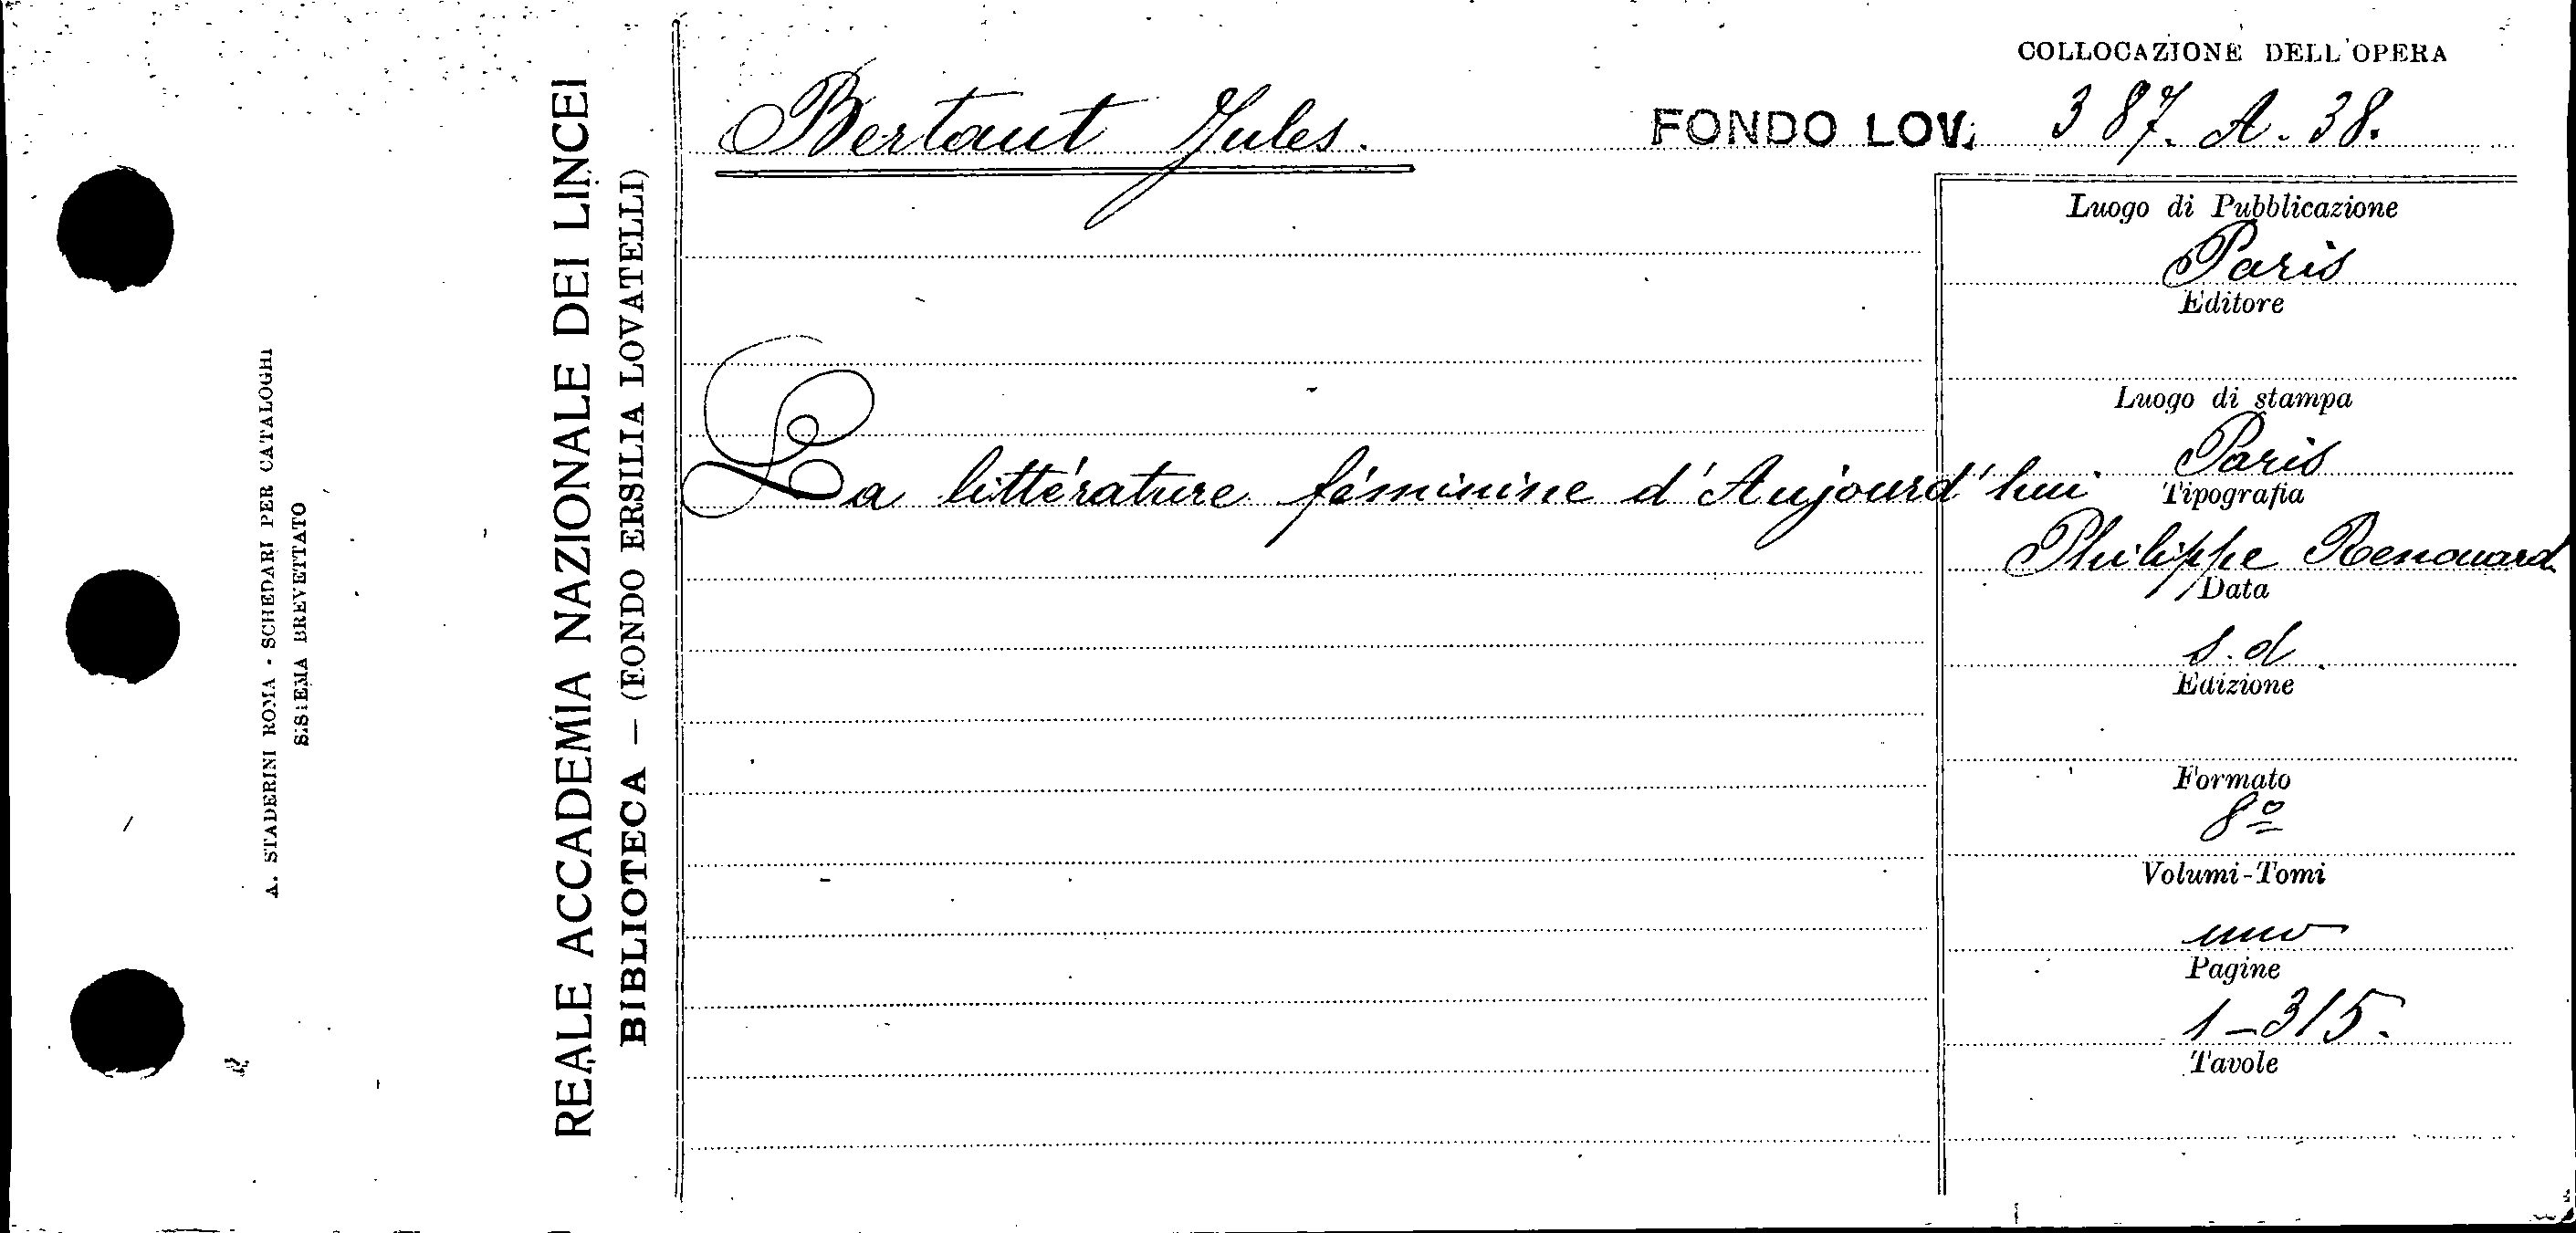 A. STADERINI ROMA - SCHEDARI PER CATALOGHI
SISTEMA BREVETTATO
REALE ACCADEMIA NAZIONALE DEI LINCEI
BIBLIOTECA — (FONDO ERSILIA LOVATELLI)
COLLOCAZIONE DELL'OPERA
Bertaut Jules.
FONDO LOV. 387. A. 38.
La littérature féminine d'Aujourd'hui
Luogo di Pubblicazione
Paris
Editore
Luogo di stampa
Paris
Tipografia
Philippe Renouard
Data
s.d.
Edizione
Formato
8º
Volumi-Tomi
uno
Pagine
1-315.
Tavole